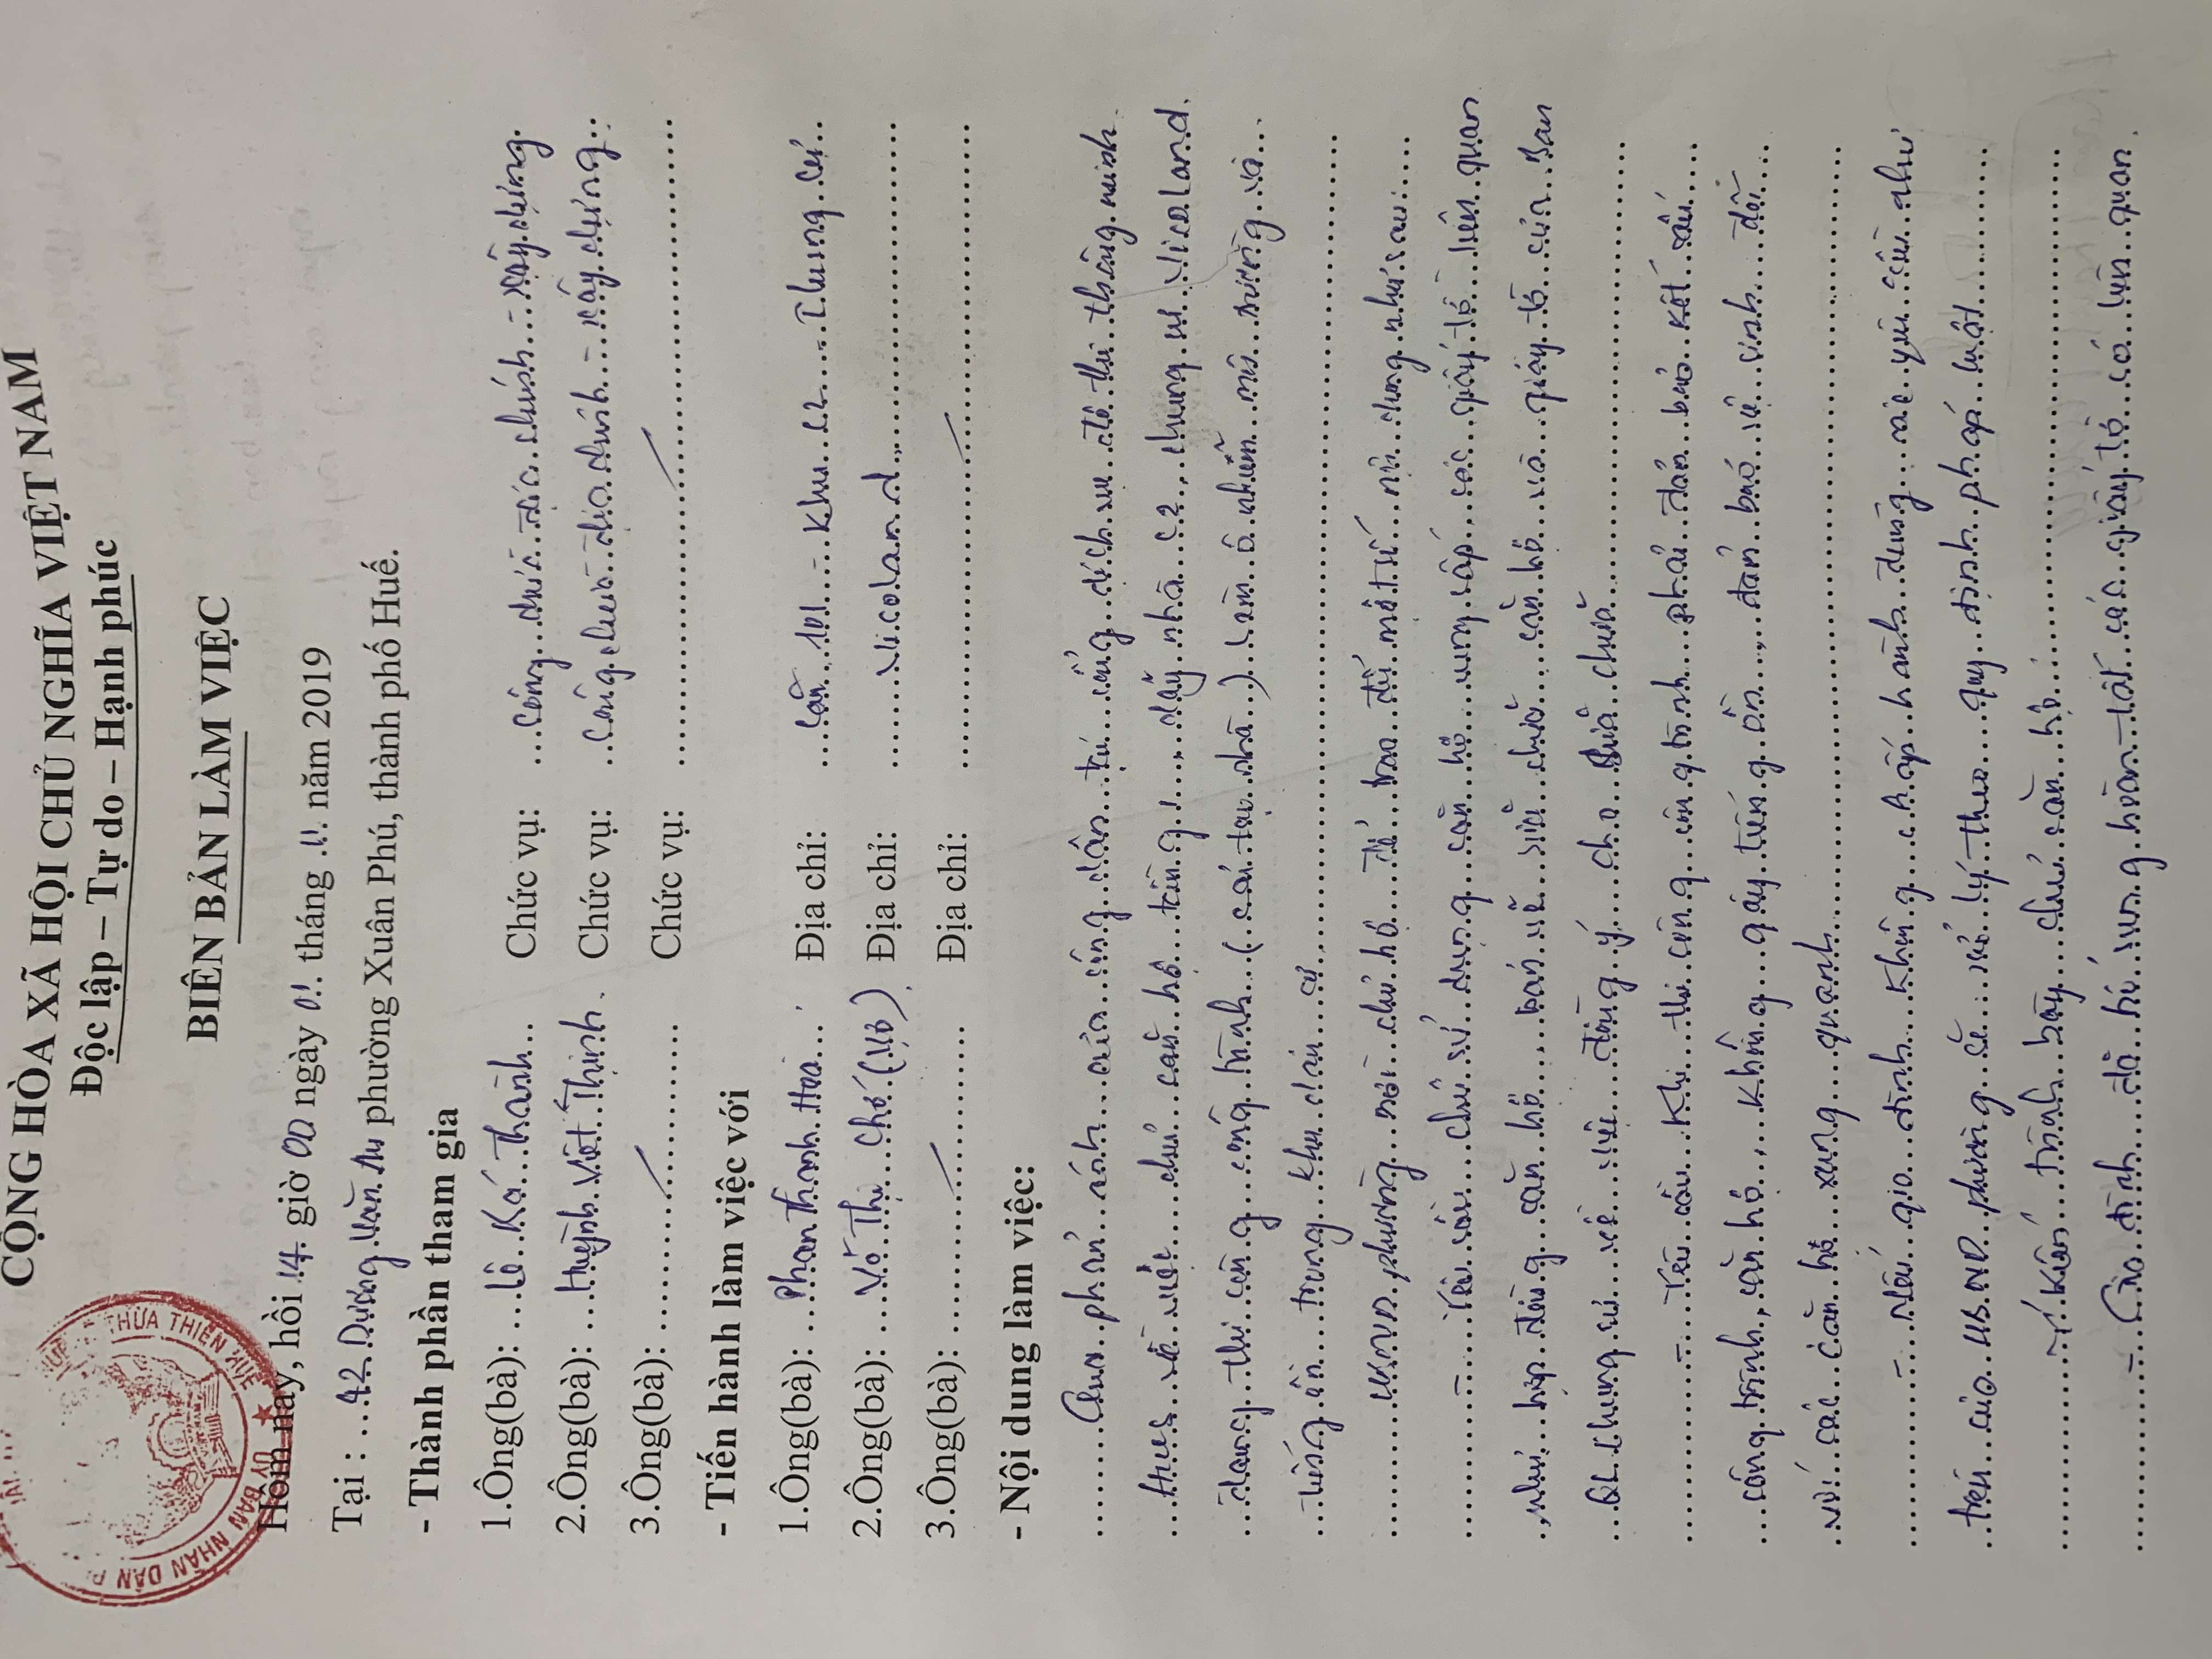 CỘNG HÒA XÃ HỘI CHỦ NGHĨA VIỆT NAM
Độc lập – Tự do – Hạnh phúc
BIÊN BẢN LÀM VIỆC
THỪA THIÊN HUẾ
ỦY BAN NHÂN DÂN P.
Hôm nay, hồi 14 giờ 00 ngày 01 tháng 11 năm 2019
Tại : 42 Dương Văn An phường Xuân Phú, thành phố Huế.
- Thành phần tham gia
1.Ông(bà): Lê Ká Thành Chức vụ: công chức địa chính - xây dựng
2.Ông(bà): Huỳnh Viết Thịnh Chức vụ: công chức địa chính - xây dựng
3.Ông(bà): Chức vụ:
- Tiến hành làm việc với
1.Ông(bà): Phan Thanh Hoà Địa chỉ: Căn 101 - Khu C2 - Chung cư
2.Ông(bà): Võ Thị Chớ (Vợ) Địa chỉ: Vicoland
3.Ông(bà): Địa chỉ:
- Nội dung làm việc:
Qua phản ánh của công dân từ cổng dịch vụ đô thị thông minh
Hues về việc chủ căn hộ tầng 1, dãy nhà C2, chung cư Vicoland
đang thi công công trình (cải tạo nhà) làm ô nhiễm môi trường và
tiếng ồn trong khu dân cư
UBND phường mời chủ hộ để trao đổi một số nội dung như sau
- Yêu cầu chủ sử dụng căn hộ cung cấp các giấy tờ liên quan
như hợp đồng căn hộ, bản vẽ sửa chữa căn hộ và giấy tờ của Ban
QL chung cư về việc đồng ý cho sửa chữa
- Yêu cầu khi thi công công trình phải đảm bảo kết cấu
công trình, căn hộ, không gây tiếng ồn, đảm bảo vệ sinh đối
với các căn hộ xung quanh
- Nếu gia đình không chấp hành đúng các yêu cầu như
trên của UBND phường sẽ xử lý theo quy định pháp luật
- Ý kiến trình bày chủ căn hộ:
- Gia đình đã bổ sung hoàn tất các giấy tờ có liên quan